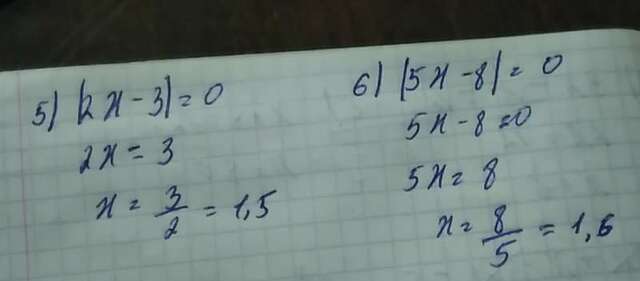 5) |2x - 3| = 0
2x = 3
x = 3/2 = 1,5
6) |5x - 8| = 0
5x - 8 = 0
5x = 8
x = 8/5 = 1,6